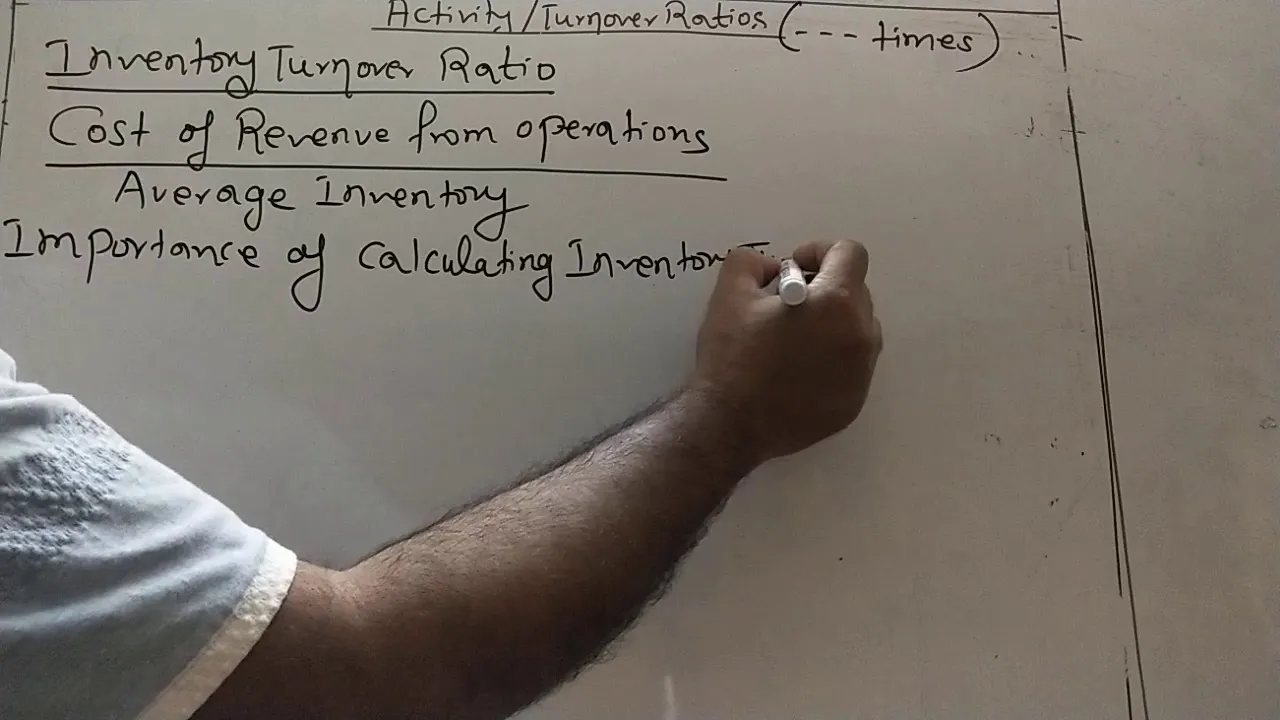 Activity/Turnover Ratios (--- times)
Inventory Turnover Ratio
Cost of Revenue from operations
Average Inventory
Importance of calculating Inventory